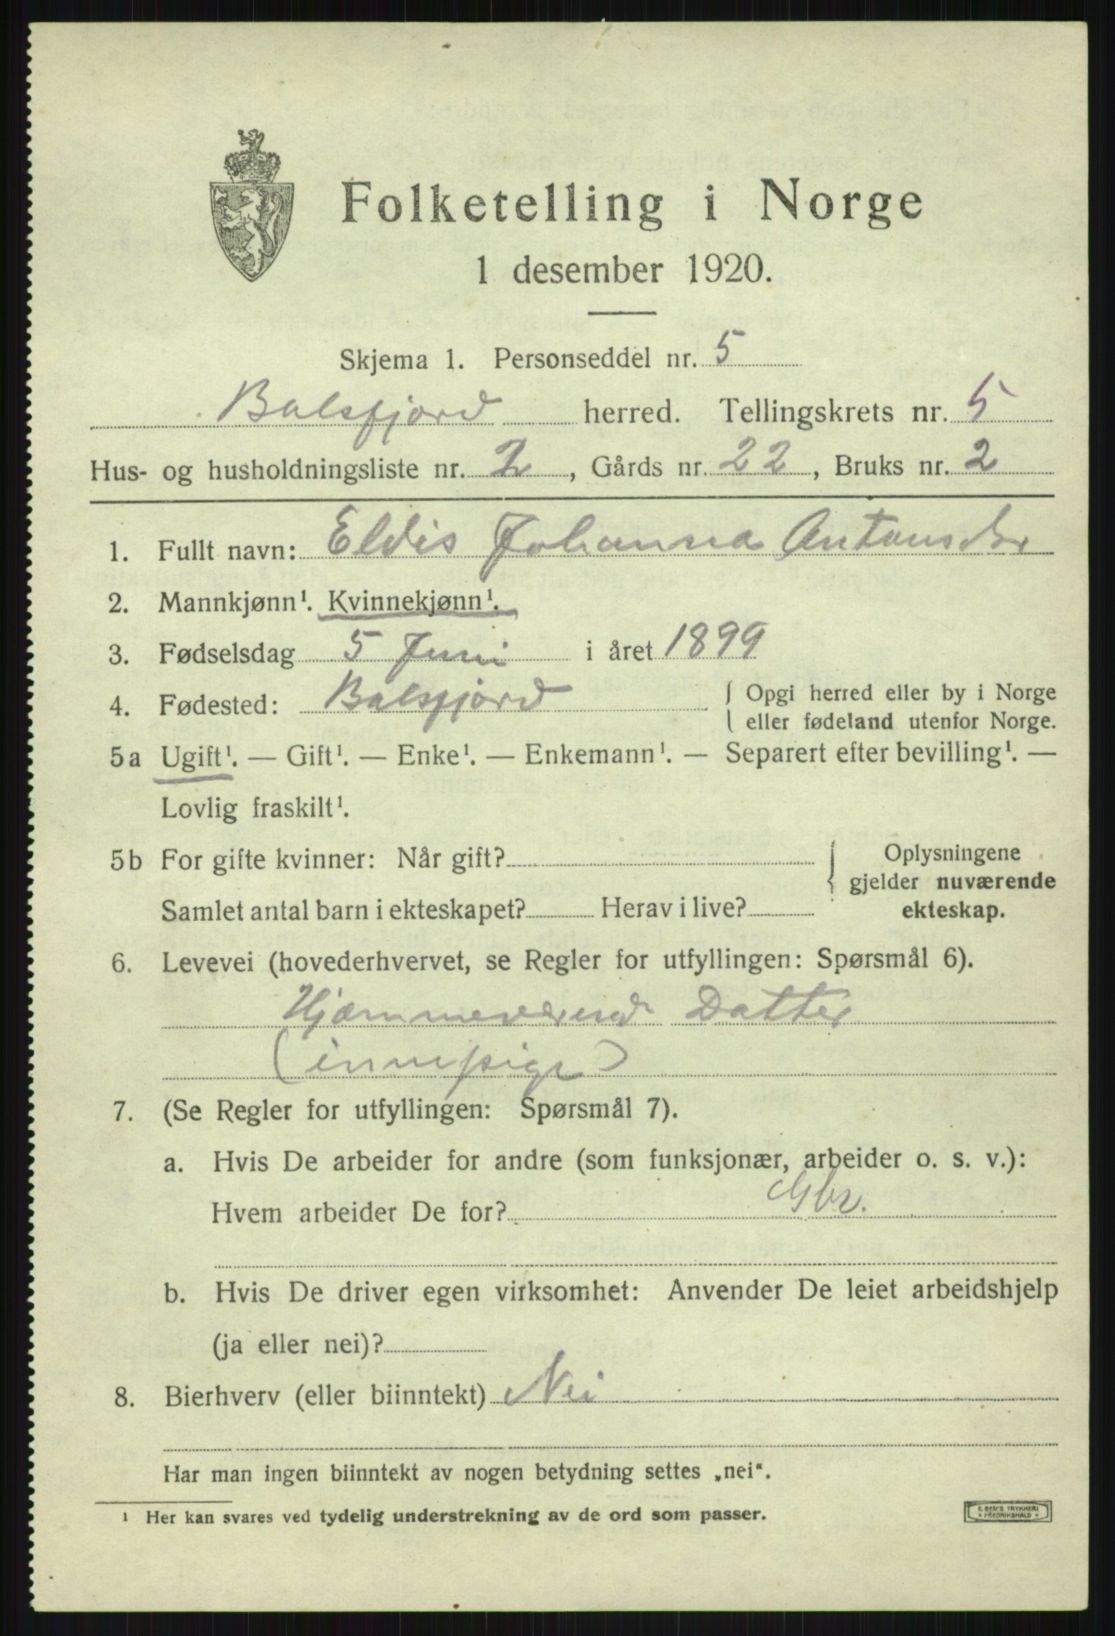 Folketelling i Norge
1 desember 1920.
Skjema 1. Personseddel nr. 5
Balsfjord herred. Tellingskrets nr. 5
Hus- og husholdningsliste nr. 2, Gårds nr. 22, Bruks nr. 2
1. Fullt navn: Eldis Johanna Antonsdtr
2. Mannkjønn¹. Kvinnekjønn¹.
3. Fødselsdag 5 Juni i året 1899
4. Fødested: Balsfjord { Opgi herred eller by i Norge
eller fødeland utenfor Norge.
5a Ugift¹. — Gift¹. — Enke¹. — Enkemann¹. — Separert efter bevilling¹. —
Lovlig fraskilt¹.
5b For gifte kvinner: Når gift? { Oplysningene
gjelder nuværende
Samlet antal barn i ekteskapet? Herav i live? ekteskap.
6. Levevei (hovederhvervet, se Regler for utfyllingen: Spørsmål 6).
Hjemmeværend Datter
(innepige)
7. (Se Regler for utfyllingen: Spørsmål 7).
a. Hvis De arbeider for andre (som funksjonær, arbeider o. s. v.):
Hvem arbeider De for? Gbr.
b. Hvis De driver egen virksomhet: Anvender De leiet arbeidshjelp
(ja eller nei)?
8. Bierhverv (eller biinntekt) Nei
Har man ingen biinntekt av nogen betydning settes „nei“.
¹ Her kan svares ved tydelig understrekning av de ord som passer.